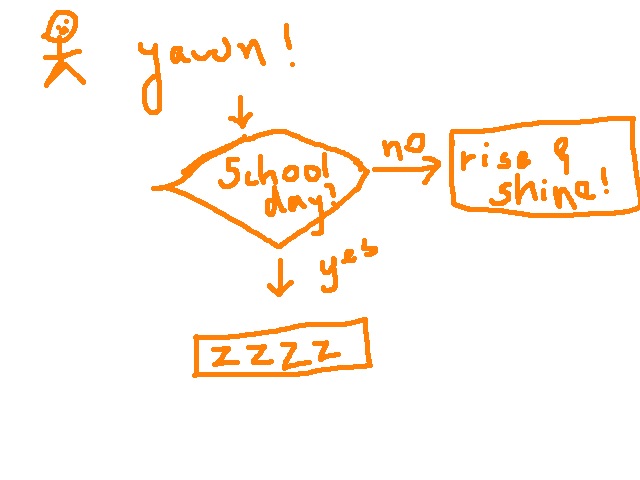 yawn!
School
day?
no
rise &
shine!
yes
zzzz